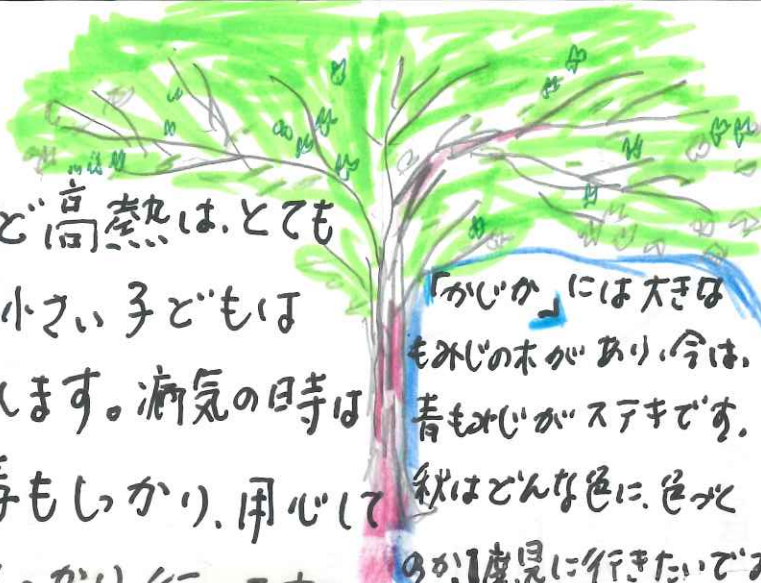 ど高熱は、とても
小さい子どもは
します。病気の時は
もしっかり、用心して
「かじか」には大きな
もみじの木があり、今は、
青もみじがステキです。
秋はどんな色に、色づく
のか1度見に行きたいです